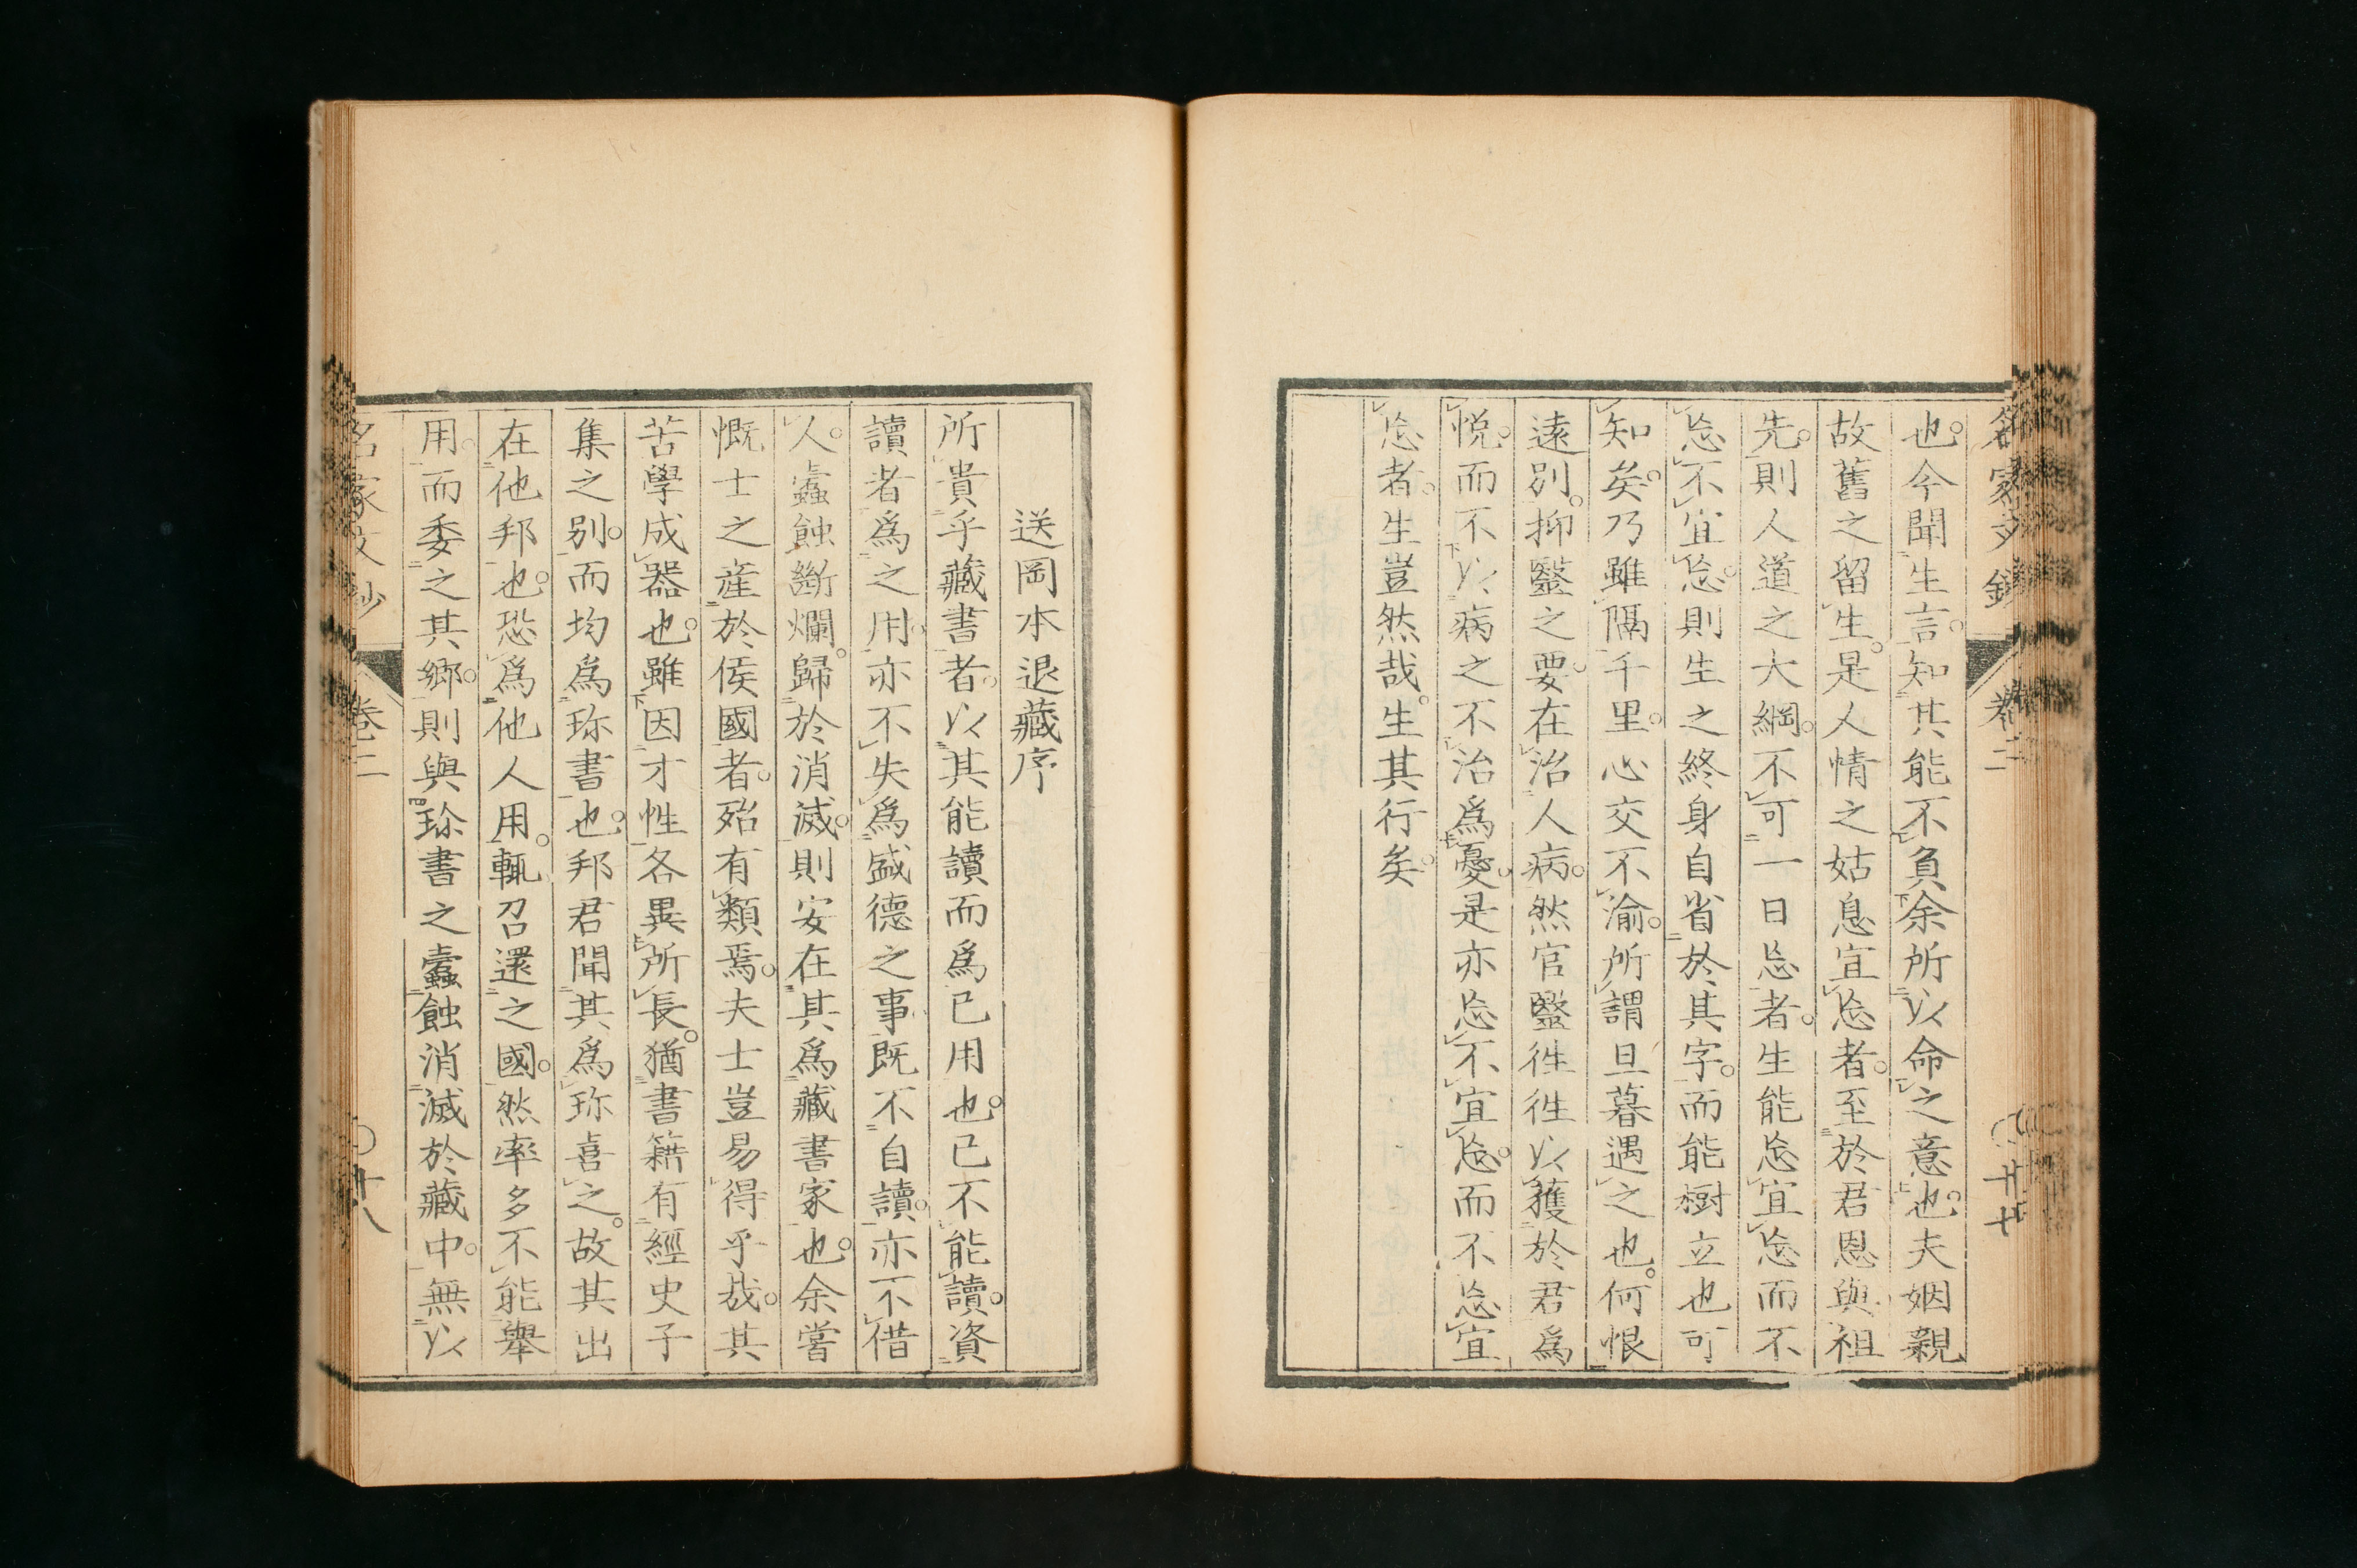 名家文鈔 卷二 廿七
也。今聞生言。知其能不負余所以命之意也。夫姻親
故舊之留生。是人情之姑息宜忘者。至於君恩與祖
先。則人道之大綱。不可一日忘者。生能忘宜忘而不
忘不宜忘。則生之終身自省於其字。而能樹立也可
知矣。乃雖隔千里。心交不渝。所謂旦暮遇之也。何恨
遠別。抑毉之要。在治人病。然官毉徃徃以獲於君爲
悦。而不以病之不治爲憂。是亦忘不宜忘。而不忘宜
忘者。生豈然哉。生其行矣。
送岡本退藏序
所貴乎藏書者。以其能讀而爲已用也。已不能讀。資
讀者爲之用。亦不失爲盛德之事。既不自讀。亦不借
人。蠹蝕斷爛。歸於消滅。則安在其爲藏書家也。余嘗
慨士之產於侯國者。殆有類焉。夫士豈易得乎哉。其
苦學成器也。雖因才性各異所長。猶書籍有經史子
集之別。而均爲珎書也。邦君聞其爲珎喜之。故其出
在他邦也。恐爲他人用。輒召還之國。然率多不能舉
用。而委之其鄉。則與珎書之蠹蝕消滅於藏中。無以
名家文鈔 卷二 〇廿八